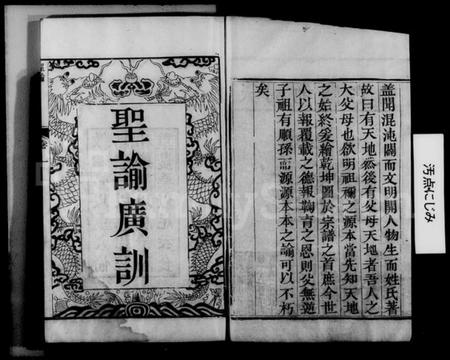 蓋聞混沌闢而文明開人物生而姓氏著
故曰有天地然後有父母天地者吾人之
大父母也欲明祖禰之源本當先知天地
之始終爰繪乾坤圖於宗譜之首庶今世
人以報覆載之德報鞠育之恩則父無遊
子祖有順孫而源源本本之諭可以不朽
矣
聖諭廣訓
汚点にじみ